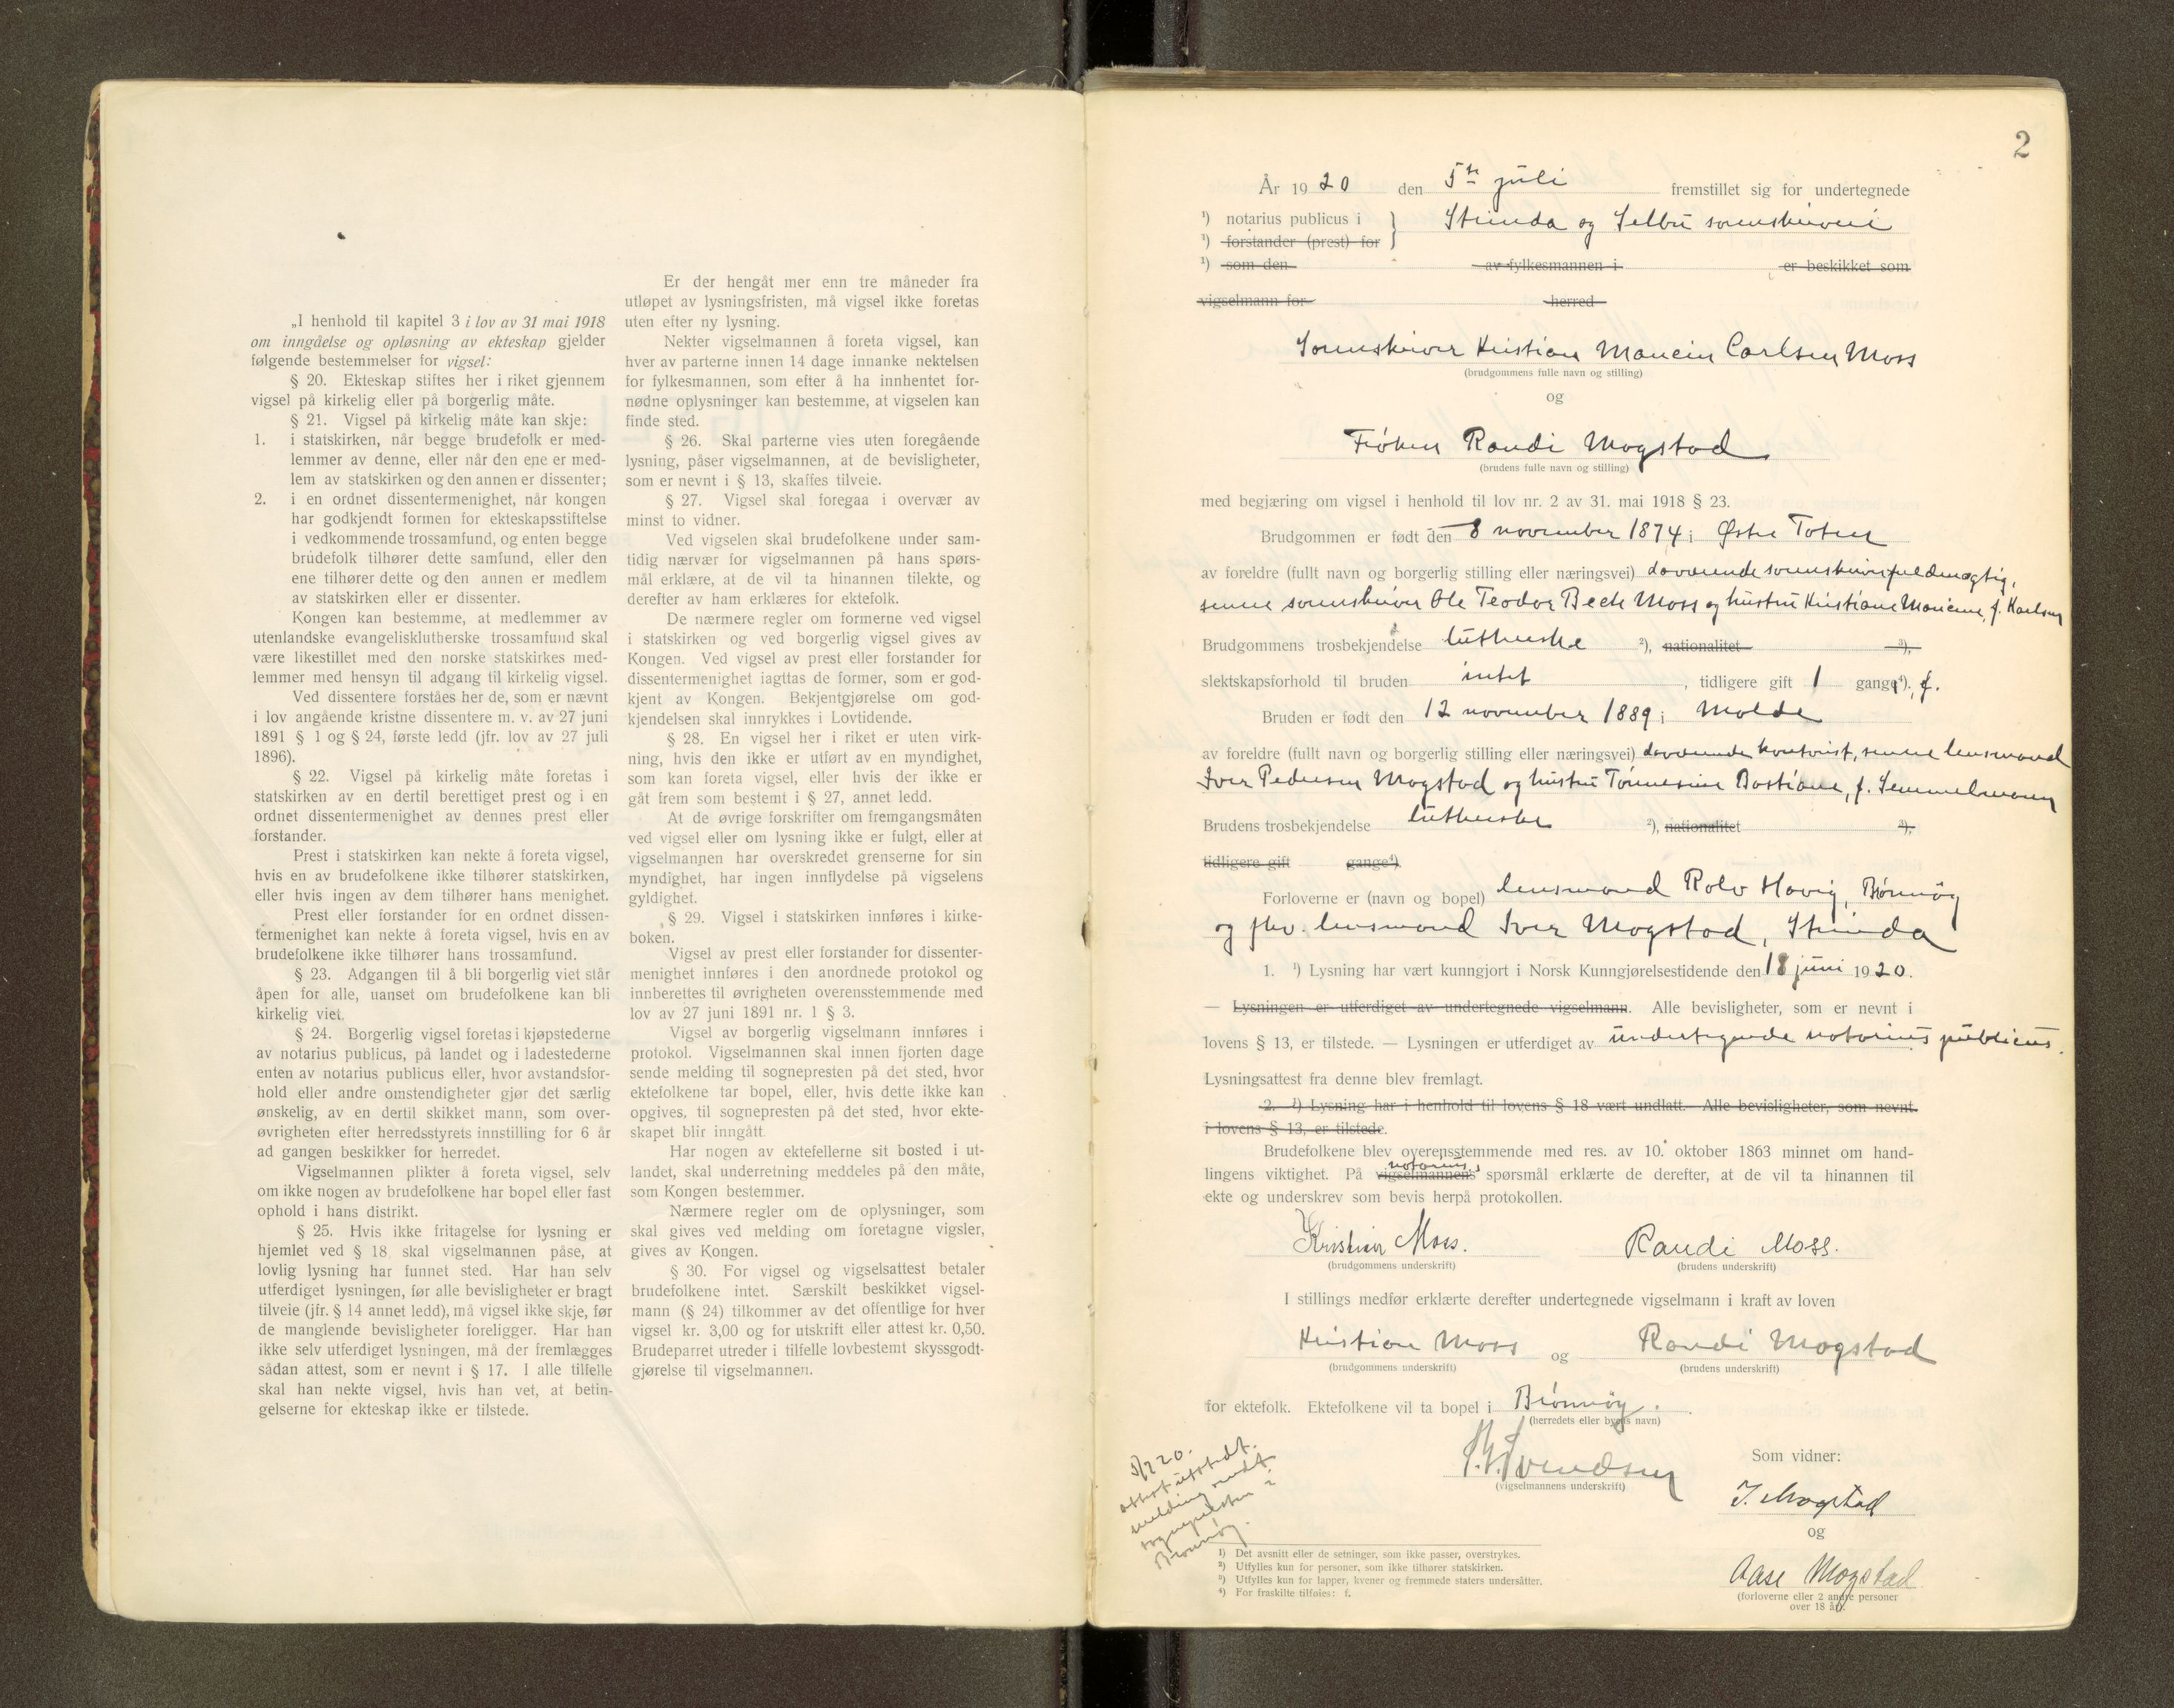 „I henhold til kapitel 3 i lov av 31 mai 1918
om inngåelse og opløsning av ekteskap gjelder
følgende bestemmelser for vigsel:
§ 20. Ekteskap stiftes her i riket gjennem
vigsel på kirkelig eller på borgerlig måte.
§ 21. Vigsel på kirkelig måte kan skje:
1. i statskirken, når begge brudefolk er med-
lemmer av denne, eller når den ene er med-
lem av statskirken og den annen er dissenter;
2. i en ordnet dissentermenighet, når kongen
har godkjendt formen for ekteskapsstiftelse
i vedkommende trossamfund, og enten begge
brudefolk tilhører dette samfund, eller den
ene tilhører dette og den annen er medlem
av statskirken eller er dissenter.
Kongen kan bestemme, at medlemmer av
utenlandske evangelisklutherske trossamfund skal
være likestillet med den norske statskirkes med-
lemmer med hensyn til adgang til kirkelig vigsel.
Ved dissentere forståes her de, som er nævnt
i lov angående kristne dissentere m. v. av 27 juni
1891 § 1 og § 24, første ledd (jfr. lov av 27 juli
1896).
§ 22. Vigsel på kirkelig måte foretas i
statskirken av en dertil berettiget prest og i en
ordnet dissentermenighet av dennes prest eller
forstander.
Prest i statskirken kan nekte å foreta vigsel,
hvis en av brudefolkene ikke tilhører statskirken,
eller hvis ingen av dem tilhører hans menighet.
Prest eller forstander for en ordnet dissen-
termenighet kan nekte å foreta vigsel, hvis en av
brudefolkene ikke tilhører hans trossamfund.
§ 23. Adgangen til å bli borgerlig viet står
åpen for alle, uanset om brudefolkene kan bli
kirkelig viet.
§ 24. Borgerlig vigsel foretas i kjøpstederne
av notarius publicus, på landet og i ladestederne
enten av notarius publicus eller, hvor avstandsfor-
hold eller andre omstendigheter gjør det særlig
ønskelig, av en dertil skikket mann, som over-
øvrigheten efter herredsstyrets innstilling for 6 år
ad gangen beskikker for herredet.
Vigselmannen plikter å foreta vigsel, selv
om ikke nogen av brudefolkene har bopel eller fast
ophold i hans distrikt.
§ 25. Hvis ikke fritagelse for lysning er
hjemlet ved § 18 skal vigselmannen påse, at
lovlig lysning har funnet sted. Har han selv
utferdiget lysningen, før alle bevisligheter er bragt
tilveie (jfr. § 14 annet ledd), må vigsel ikke skje, før
de manglende bevisligheter foreligger. Har han
ikke selv utferdiget lysningen, må der fremlægges
sådan attest, som er nevnt i § 17. I alle tilfelle
skal han nekte vigsel, hvis han vet, at betin-
gelserne for ekteskap ikke er tilstede.
Er der hengåt mer enn tre måneder fra
utløpet av lysningsfristen, må vigsel ikke foretas
uten efter ny lysning.
Nekter vigselmannen å foreta vigsel, kan
hver av parterne innen 14 dage innanke nektelsen
for fylkesmannen, som efter å ha innhentet for-
nødne oplysninger kan bestemme, at vigselen kan
finde sted.
§ 26. Skal parterne vies uten foregående
lysning, påser vigselmannen, at de bevisligheter,
som er nevnt i § 13, skaffes tilveie.
§ 27. Vigsel skal foregaa i overvær av
minst to vidner.
Ved vigselen skal brudefolkene under sam-
tidig nærvær for vigselmannen på hans spørs-
mål erklære, at de vil ta hinannen tilekte, og
derefter av ham erklæres for ektefolk.
De nærmere regler om formerne ved vigsel
i statskirken og ved borgerlig vigsel gives av
Kongen. Ved vigsel av prest eller forstander for
dissentermenighet iagttas de former, som er god-
kjent av Kongen. Bekjentgjørelse om god-
kjendelsen skal innrykkes i Lovtidende.
§ 28. En vigsel her i riket er uten virk-
ning, hvis den ikke er utført av en myndighet,
som kan foreta vigsel, eller hvis der ikke er
gåt frem som bestemt i § 27, annet ledd.
At de øvrige forskrifter om fremgangsmåten
ved vigsel eller om lysning ikke er fulgt, eller at
vigselmannen har overskredet grenserne for sin
myndighet, har ingen innflydelse på vigselens
gyldighet.
§ 29. Vigsel i statskirken innføres i kirke-
boken.
Vigsel av prest eller forstander for dissenter-
menighet innføres i den anordnede protokol og
innberettes til øvrigheten overensstemmende med
lov av 27 juni 1891 nr. 1 § 3.
Vigsel av borgerlig vigselmann innføres i
protokol. Vigselmannen skal innen fjorten dage
sende melding til sognepresten på det sted, hvor
ektefolkene tar bopel, eller, hvis dette ikke kan
opgives, til sognepresten på det sted, hvor ekte-
skapet blir inngått.
Har nogen av ektefellerne sit bosted i ut-
landet, skal underretning meddeles på den måte,
som Kongen bestemmer.
Nærmere regler om de oplysninger, som
skal gives ved melding om foretagne vigsler,
gives av Kongen.
§ 30. For vigsel og vigselsattest betaler
brudefolkene intet. Særskilt beskikket vigsel-
mann (§ 24) tilkommer av det offentlige for hver
vigsel kr. 3,00 og for utskrift eller attest kr. 0,50.
Brudeparret utreder i tilfelle lovbestemt skyssgodt-
gjørelse til vigselmannen.
2
År 1920 den 5te juli fremstillet sig for undertegnede
¹) notarius publicus i } Strinda og Selbu sorenskriveri
¹) forstander (prest) for
¹) som den av fylkesmannen i er beskikket som
vigselmann for herred
Sorenskriver Kristian Mauciu Carlsen Moss
(brudgommens fulle navn og stilling)
og
Frøken Randi Mogstad
(brudens fulle navn og stilling)
med begjæring om vigsel i henhold til lov nr. 2 av 31. mai 1918 § 23.
Brudgommen er født den 8 november 1874 i Østre Toten
av foreldre (fullt navn og borgerlig stilling eller næringsvei) daværende sorenskriverfuldmægtig,
senere sorenskriver Ole Teodor Beck Moss og hustru Kristiane Mariene, f. Karlsen
Brudgommens trosbekjendelse lutherske ²), nationalitet ³),
slektskapsforhold til bruden intet, tidligere gift 1 gang⁴), f.
Bruden er født den 12 november 1889 i Molde
av foreldre (fullt navn og borgerlig stilling eller næringsvei) daværende kontorist, senere lensmand
Iver Pedersen Mogstad og hustru Tønnesine Bastiane, f. Semmelmann
Brudens trosbekjendelse lutherske ²), nationalitet ³),
tidligere gift gange⁴).
Forloverne er (navn og bopel) lensmand Rolv Hovig, Brønnøy
og fhv. lensmand Iver Mogstad, Strinda
1. ¹) Lysning har vært kunngjort i Norsk Kunngjørelsestidende den 18 juni 1920.
— Lysningen er utferdiget av undertegnede vigselmann. Alle bevisligheter, som er nevnt i
lovens § 13, er tilstede. — Lysningen er utferdiget av undertegnede notarius publicus.
Lysningsattest fra denne blev fremlagt.
2. ¹) Lysning har i henhold til lovens § 18 vært undlatt. Alle bevisligheter, som nevnt
i lovens § 13, er tilstede.
Brudefolkene blev overensstemmende med res. av 10. oktober 1863 minnet om hand-
lingens viktighet. På vigselmannens notarius' spørsmål erklærte de derefter, at de vil ta hinannen til
ekte og underskrev som bevis herpå protokollen.
Kristian Moss. Randi Moss.
(brudgommens underskrift) (brudens underskrift)
I stillings medfør erklærte derefter undertegnede vigselmann i kraft av loven
Kristian Moss og Randi Mogstad
(brudgommens underskrift) (brudens underskrift)
for ektefolk. Ektefolkene vil ta bopel i Brønnøy.
(herredets eller byens navn)
Svendsen
(vigselmannens underskrift)
Som vidner:
I. Mogstad
og
Aase Mogstad
(forloverne eller 2 andre personer
over 18 år).
5/7 20.
attest utstedt.
melding sendt
sognepresten i
Brønnøy.
¹) Det avsnitt eller de setninger, som ikke passer, overstrykes.
²) Utfylles kun for personer, som ikke tilhører statskirken.
³) Utfylles kun for lapper, kvener og fremmede staters undersåtter.
⁴) For fraskilte tilføies: f.